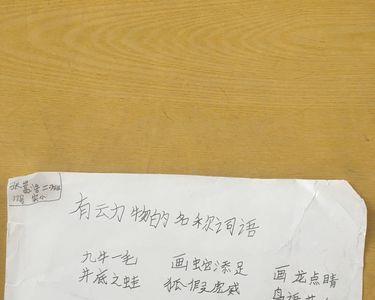 有动物的名称词语
九牛一毛 画蛇添足 画龙点睛
井底之蛙 狐假虎威